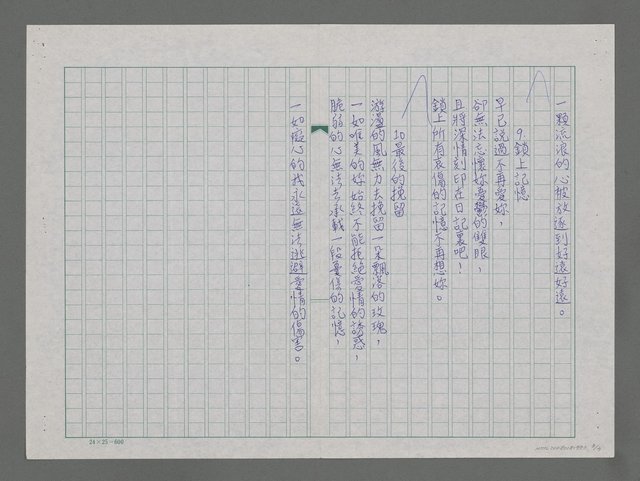 一顆流浪的心被放逐到好遠好遠。
9.鎖上記憶
早已說過不再愛妳，
卻無法忘懷妳憂鬱的雙眼，
且將深情刻印在日記裏吧！
鎖上所有哀傷的記憶不再想妳。
10.最後的挽留
游濕的風無力去挽留一朵飄落的玫瑰，
一如唯美的妳始終不能拒絕愛情的誘惑，
脆弱的心無法去承載一段憂傷的記憶，
一如癡心的我永遠無法逃避愛情的傷害。
24×25=600